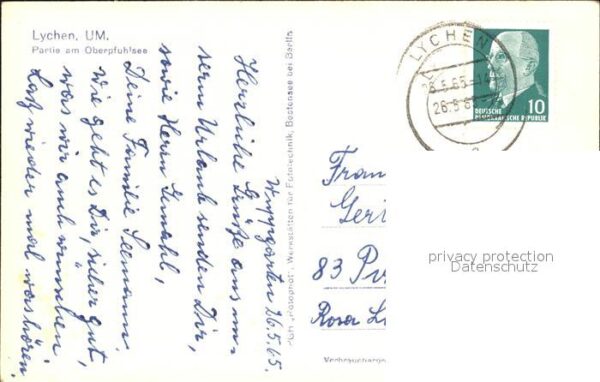 Lychen, UM.
Partie am Oberpfuhlsee
Wuppgarten 26.5.65.
Herzliche Grüße aus un-
serm Urlaub senden Dir,
sowie Herrn Gemahl,
Deine Familie Seemann.
Wie geht es Dir, sicher gut,
was wir auch wünschen.
Laß wieder mal was hören.
"Fotopnot", Werkstätten für Fototechnik, Bestensee bei Berlin
LYCHEN
26.5.65
10
DEUTSCHE
DEMOKRATISCHE REPUBLIK
Fran
Geri
83 P
Rosa L
privacy protection
Datenschutz
Verbraucherpreis